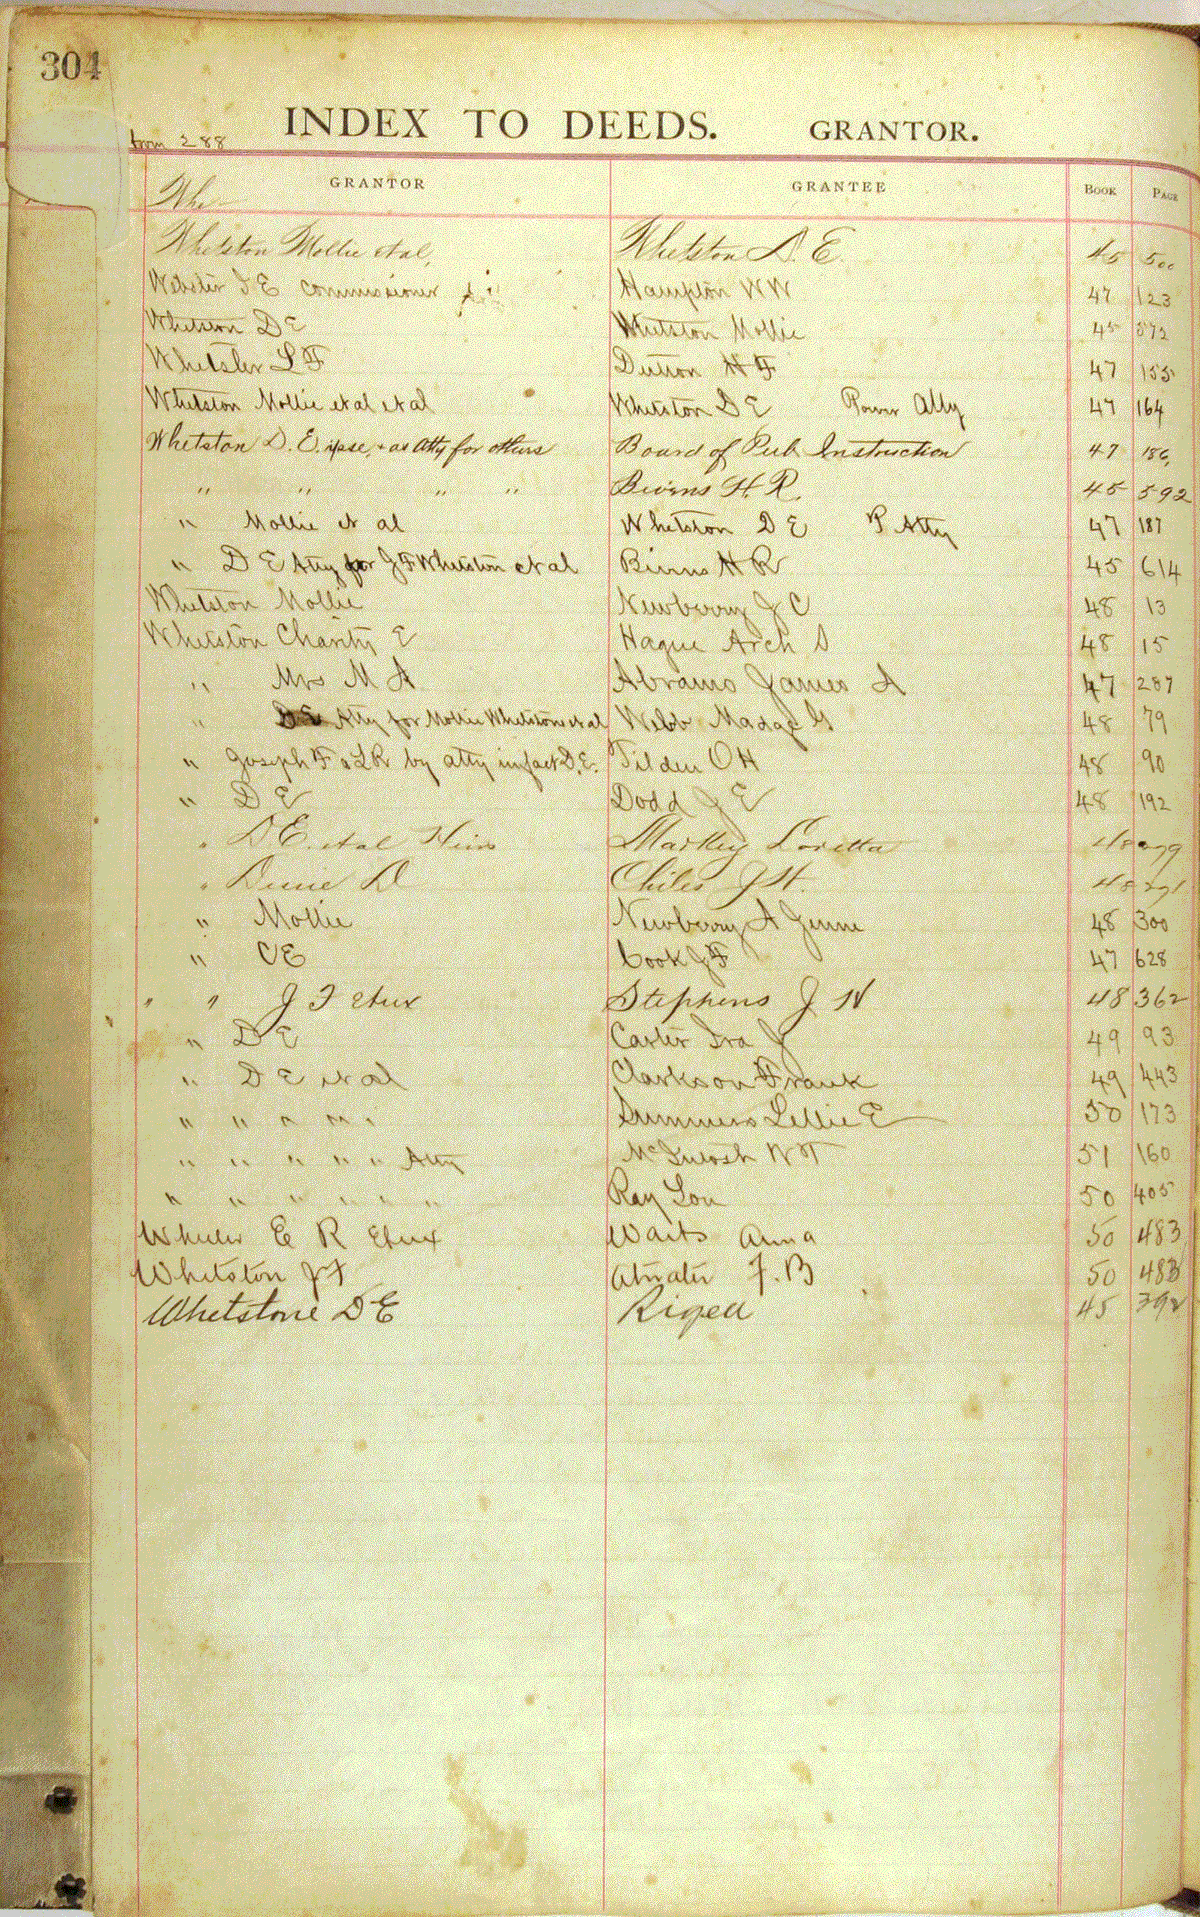 304
INDEX TO DEEDS. GRANTOR.
from 288
GRANTOR GRANTEE BOOK PAGE
Whe
Whetston Mollie et al, Whetston D. E. 45 500
Webster J E Commissioner Hampton WW 47 123
Whetston D E Whetston Mollie 45 572
Whetsler L F Dutton H F 47 155
Whetston Mollie et al et al Whetston D E Power Atty 47 164
Whetston D. E. ipse, + as Atty for others Board of Pub Instruction 47 186
" " " " Bivins H. R. 45 592
" Mollie et al Whetston D E P Atty 47 187
" D E Atty for J F Whetston et al Bivins H R 45 614
Whetston Mollie Newberry J C 48 13
Whetston Charity E Hague Arch S 48 15
" Mrs M A. Abrams James A 47 287
" D E Atty for Mollie Whetston et al Webb Madge G 48 79
" Joseph F & L R by atty in fact D. E. Tilden O H 48 90
" D E Dodd J E 48 192
" D E. et al Heirs Markey Loretta 48
" D Chiles J H. 48
" Mollie Newberry A Jenne 48 300
" C E Cook J F 47 628
" " J F et ux Stephens J W 48 362
" D E Carter Ira J 49 93
" D E et al Clarkson Frank 49 443
" " " " " Summers Lillie E 50 173
" " " " " Atty McIntosh W T 51 160
" " " " " " Ray Lou 50 405
Wheeler E R Et ux Waits Anna 50 483
Whetston J F Atwater F. B 50 483
Whetstone D E Rigell 45 392